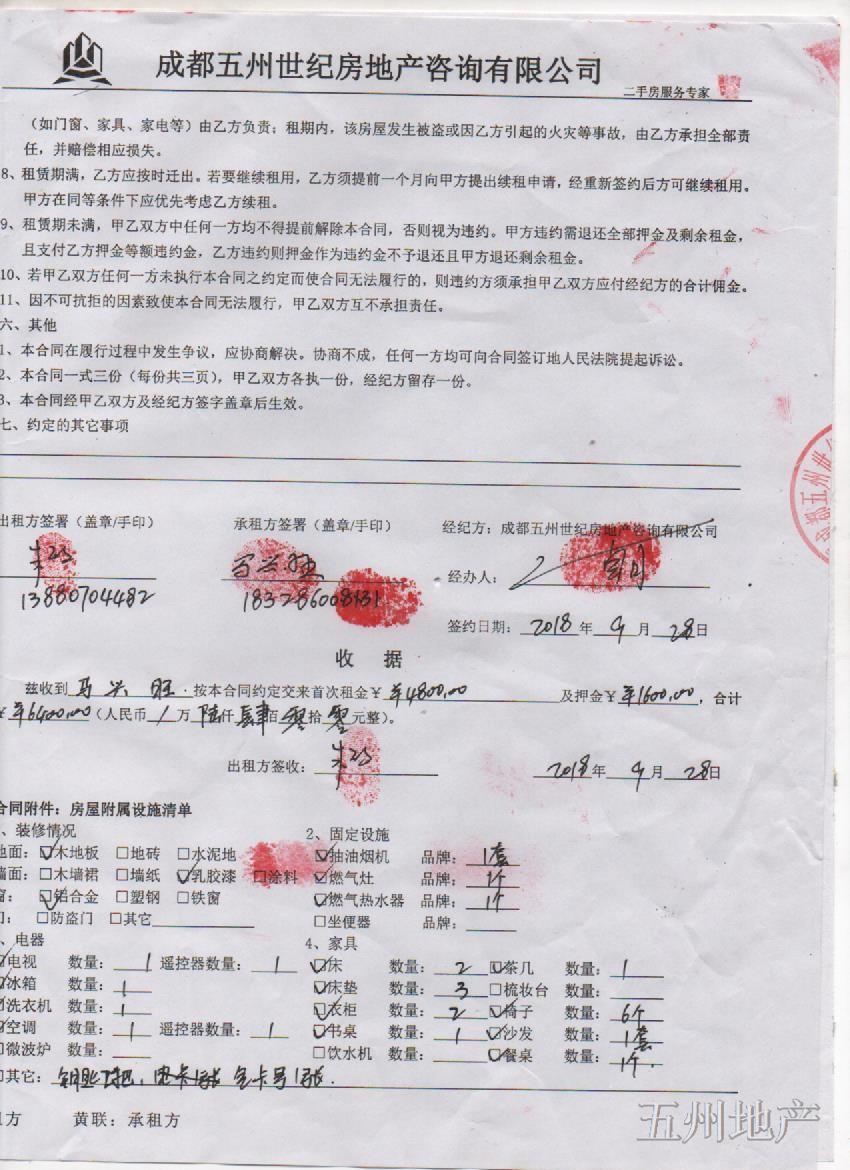 成都五州世纪房地产咨询有限公司
二手房服务专家
（如门窗、家具、家电等）由乙方负责；租期内，该房屋发生被盗或因乙方引起的火灾等事故，由乙方承担全部责
任，并赔偿相应损失。
8、租赁期满，乙方应按时迁出。若要继续租用，乙方须提前一个月向甲方提出续租申请，经重新签约后方可继续租用。
甲方在同等条件下应优先考虑乙方续租。
9、租赁期未满，甲乙双方中任何一方均不得提前解除本合同，否则视为违约。甲方违约需退还全部押金及剩余租金，
且支付乙方押金等额违约金，乙方违约则押金作为违约金不予退还且甲方退还剩余租金。
10、若甲乙双方任何一方未执行本合同之约定而使合同无法履行的，则违约方须承担甲乙双方应付经纪方的合计佣金。
11、因不可抗拒的因素致使本合同无法履行，甲乙双方互不承担责任。
六、其他
1、本合同在履行过程中发生争议，应协商解决。协商不成，任何一方均可向合同签订地人民法院提起诉讼。
2、本合同一式三份（每份共三页），甲乙双方各执一份，经纪方留存一份。
3、本合同经甲乙双方及经纪方签字盖章后生效。
七、约定的其它事项
出租方签署（盖章/手印） 承租方签署（盖章/手印） 经纪方：成都五州世纪房地产咨询有限公司
马兴旺 经办人：
13880704482
签约日期：2018年9月28日
收 据
兹收到 马兴旺 按本合同约定交来首次租金￥ ￥4800.00 及押金￥ ￥1600.00，合计
￥ ￥6400.00（人民币 / 万 陆仟 肆百 零拾 零元整）。
出租方签收： 2018年9月28日
合同附件：房屋附属设施清单
、装修情况 2、固定设施
地面：☑木地板 □地砖 □水泥地 ☑抽油烟机 品牌：1套
墙面：□木墙裙 □墙纸 ☑乳胶漆 □涂料 ☑燃气灶 品牌：1个
窗：☑铝合金 □塑钢 □铁窗 ☑燃气热水器 品牌：1个
门：□防盗门 □其它 □坐便器 品牌：
、电器 4、家具
☑电视 数量：1 遥控器数量：1 ☑床 数量：2 ☑茶几 数量：1
☑冰箱 数量：1 ☑床垫 数量：3 □梳妆台 数量：
☑洗衣机 数量：1 ☑衣柜 数量：2 ☑椅子 数量：6个
☑空调 数量：1 遥控器数量：1 ☑书桌 数量：1 ☑沙发 数量：1套
□微波炉 数量： □饮水机 数量： ☑餐桌 数量：1个.
□其它：
方 黄联：承租方
五州地产